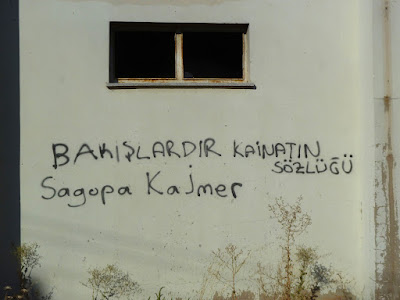 BAKIŞLARDIR KAİNATIN
SÖZLÜĞÜ
Sagopa Kajmer